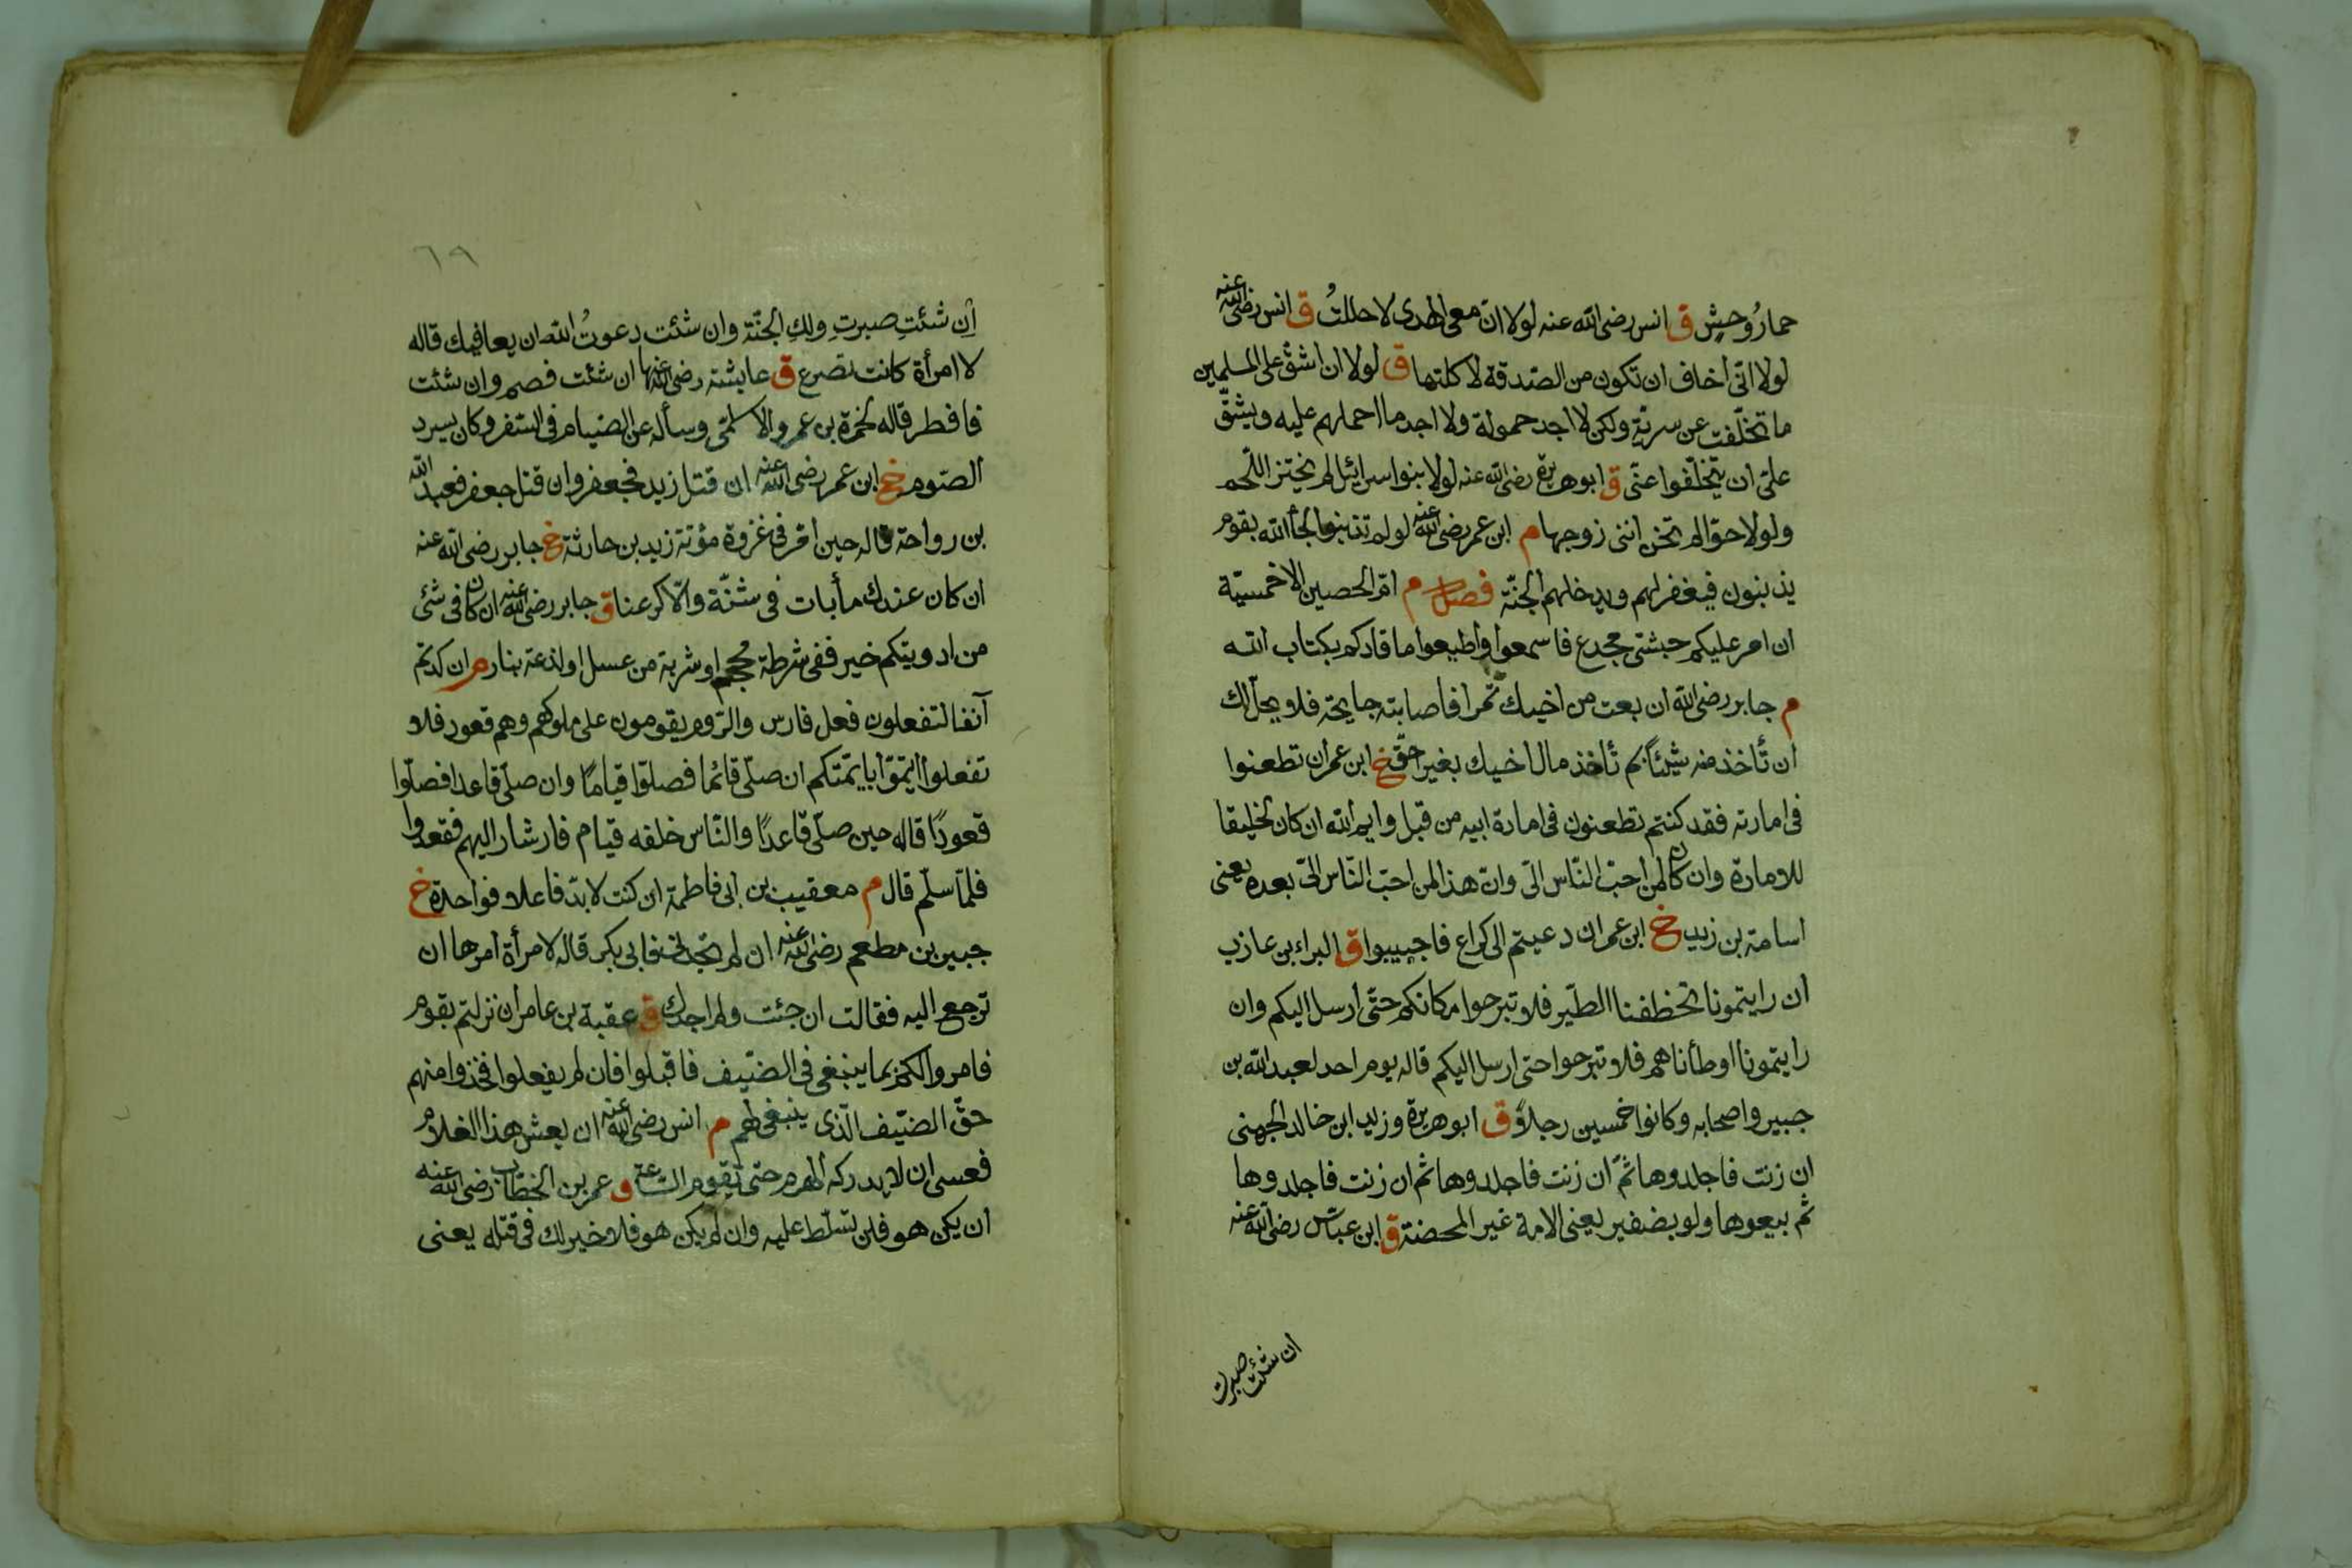 حمارُ وحشٍ ق انس رضى الله عنه لولا ان معى الهدى لاحللتُ ق انس رضى الله عنه
لولا انّى اخاف ان تكون من الصّدقة لاكلتها ق لولا ان اشقّ على المسلمين
ما تخلّفت عن سريّة ولكن لا اجد حمولة ولا اجد ما احملهم عليه ويشقّ
علىّ ان يتخلّفوا عنّى ق ابو هريرة رضى الله عنه لولا بنوا اسرائل لم يختز اللّحم
ولولا حوّا لم تخن انثى زوجها م ابن عمر رضى الله عنه لو لم تذنبوا لجأ الله بقوم
يذنبون فيغفر لهم ويدخلهم الجنّة فصل م امّ الحصين الاخمسيّة
ان امر عليكم حبشىّ مجدع فاسمعوا واطيعوا ما قادكم بكتاب الله
م جابر رضى الله ان بعت من اخيك تمرا فاصابته جايحة فلا يحلّ لك
ان تأخذ منه شيئاً بم تأخذ مال اخيك بغير حقّ خ ابن عمر ان تطعنوا
فى امارته فقد كنتم تطعنون فى امارة ابيه من قبل وايم الله ان كان لخليقا
للامارة وان كان لمن احبّ النّاس الىّ وانّ هذا لمن احبّ النّاس الىّ بعده يعنى
اسامة بن زيد خ ابن عمر ان دعيتم الى كراع فاجيبوا ق البراء بن عازب
ان رايتمونا تخطفنا الطّير فلا تبرحوا مكانكم حتّى ارسل اليكم وان
رايتمونا اوطأناهم فلا تبرحوا حتى ارسل اليكم قاله يوم احد لعبد الله بن
جبير واصحابه وكانوا خمسين رجلاً ق ابو هريرة وزيد ابن خالد الجهنى
ان زنت فاجلدوها ثمّ ان زنت فاجلدوها ثم ان زنت فاجلدوها
ثم بيعوها ولو بضفير يعنى الامة غير المحصنة ق ابن عبّاس رضى الله عنه
ان شئت صبرت
٦٩
اِن شئتِ صبرتِ ولكِ الجنّة وان شئت دعوتُ الله ان يعافيك قاله
لا امرأة كانت تصرع ق عايشة رضى الله عنها ان شئت فصم وان شئت
فافطر قاله لحمزة بن عمرو الاسلمىّ وسأله عن الصّيام فى السّفر وكان يسرد
الصّوم خ ابن عمر رضى الله عنه ان قتل زيد فجعفر وان قتل جعفر فعبد الله
بن رواحة قاله حين امّر فى غزوة مؤتة زيد بن حارثة خ جابر رضى الله عنه
ان كان عندك ماء بات فى شنّة والّا كرعنا ق جابر رضى الله عنه ان كان فى شئ
من ادويتكم خير ففى شرطة محجم او شربة من عسل او لذعة بنار م ان كدتم
آنفا لتفعلون فعل فارس والرّوم يقومون على ملوكهم وهم قعود فلا
تفعلوا ايتمّوا بايمّتكم ان صلّى قائما فصلّوا قيامًا وان صلّى قاعدا فصلّوا
قعودًا قاله حين صلّى قاعدًا والنّاس خلفه قيام فارشار اليهم فقعدوا
فلمّا سلّم قال م معقيب بن ابى فاطمة ان كنت لابدّ فاعلا فواحدة خ
جبير بن مطعم رضى الله عنه ان لم تجدنى فابى بكر قاله لامرأة امرها ان
ترجع اليه فقالت ان جئت ولم اجدك ق عقبة بن عامر ان نزلتم بقوم
فامروا لكم بما ينبغى فى الضّيف فاقبلوا فان لم يفعلوا فخذوا منهم
حقّ الضّيف الّذى ينبغى لهم م انس رضى الله عنه ان يعش هذا الغلام
فعسى ان لا يدركه الهرم حتى تقوم السّاعة ق عمر بن الخطّاب رضى الله عنه
ان يكن هو فلن تسلّط عليه وان لم يكن هو فلا خير لك فى قتله يعنى